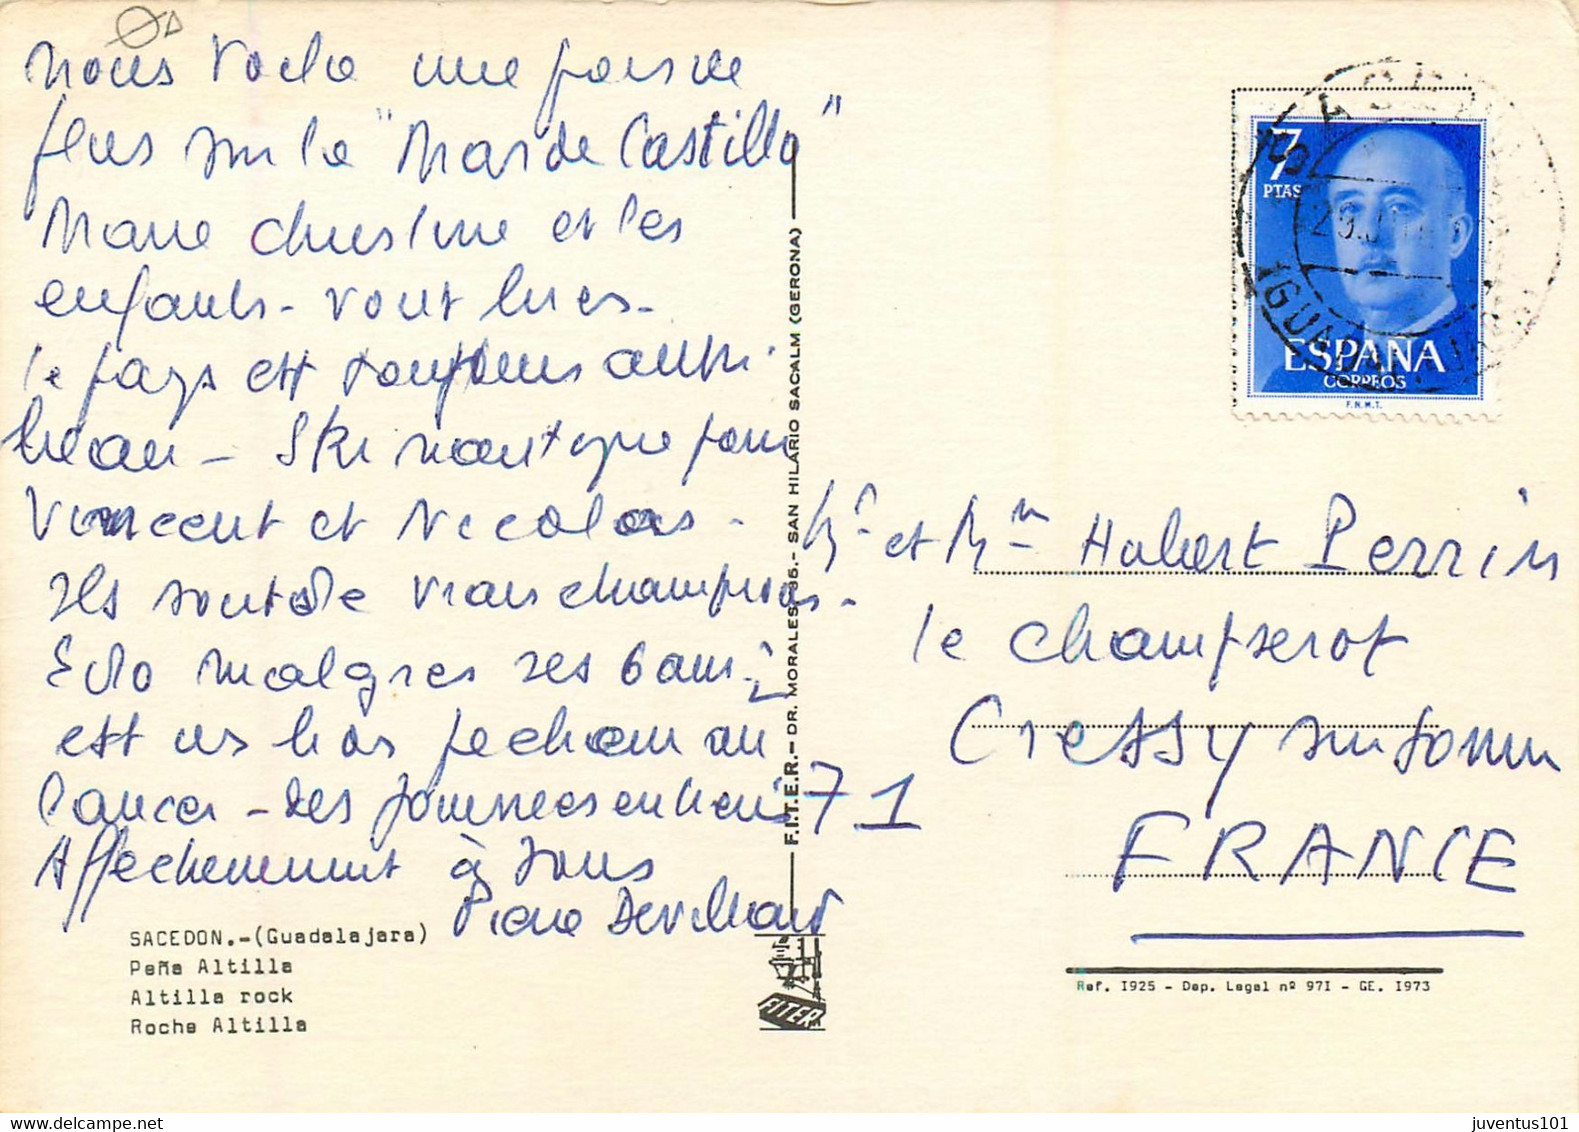 Nous voila une fois de
plus sur la "Mar de Castilla"
Marie Christine et les
enfants - vont bien -
le pays est toujours aussi
beau - Ski nautique pour
Vincent et Nicolas -
Ils sont de vrais champions -
malgres ses 6 ans -
est un bon pecheur au
lancer - Des journees entieres
Affectueusement à tous
Pierre
SACEDON.-(Guadalajara)
Peña Altilla
Altilla rock
Roche Altilla
F.I.T.E.R. - DR. MORALES, 36.- SAN HILARIO SACALM (GERONA)
FITER
7
PTAS
ESPAÑA
CORREOS
F.N.M.T.
Mr et Mme Hubert Perrin
le Champserot
Cressy sur Somme
71
FRANCE
Ref. 1925 - Dep. Legal nº 971 - GE. 1973
juventus101